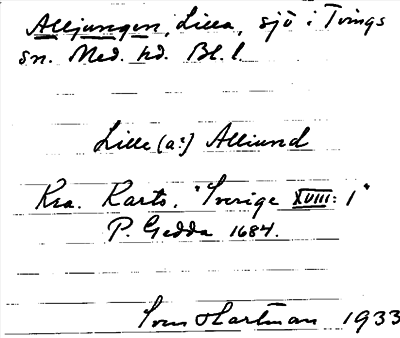 Alljungen, Lilla, sjö i Tvings
sn. Med. hd. Bl. l.
Lille (a:) Alliund
Kra. Karts. "Sverige XVIII: 1"
P. Gedda 1684.
Sven Hartman 1933